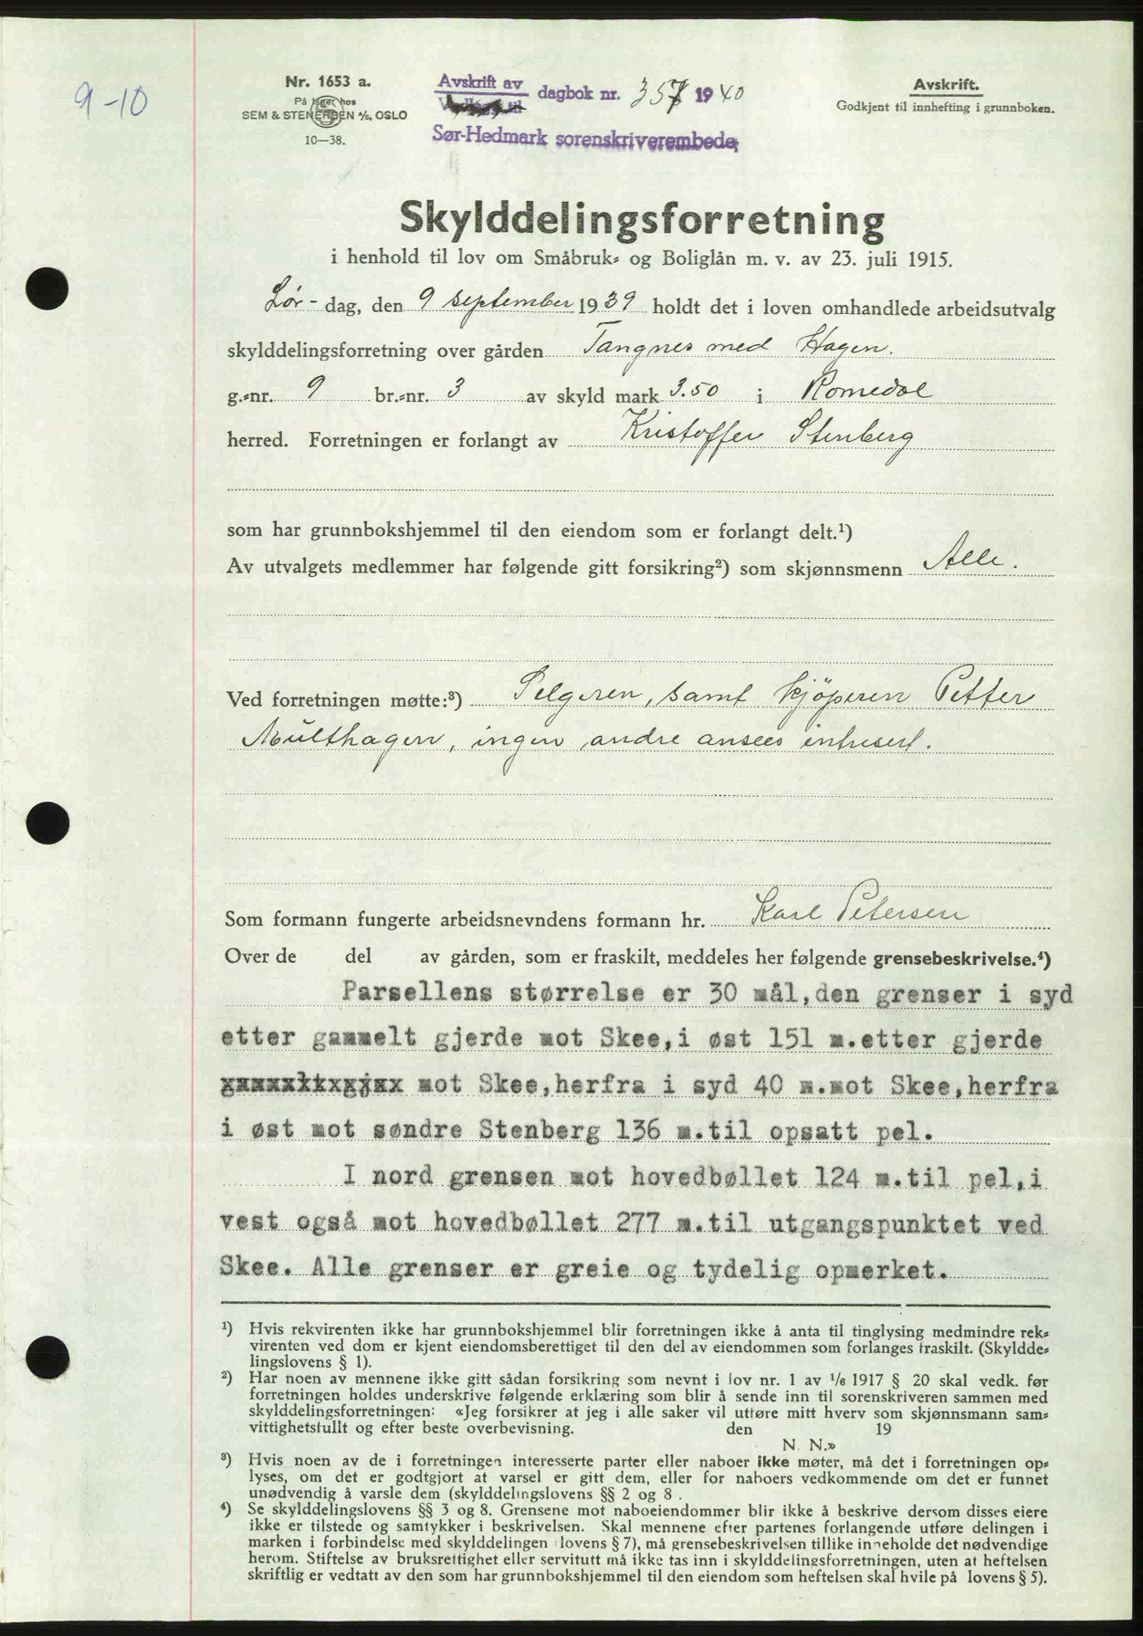 9-10
Nr. 1653 a.
På lager hos
SEM & STENERSEN A/S, OSLO
10—38.
Avskrift av
dagbok nr. 357 1940
Sør-Hedmark sorenskriverembede
Avskrift.
Godkjent til innhefting i grunnboken.
Skylddelingsforretning
i henhold til lov om Småbruk= og Boliglån m. v. av 23. juli 1915.
Lør- dag, den 9 september 1939 holdt det i loven omhandlede arbeidsutvalg
skylddelingsforretning over gården Tangnes med Hagen.
g.=nr. 9 br.=nr. 3 av skyld mark 3.50 i Romedal
herred. Forretningen er forlangt av Kristoffer Stenberg
som har grunnbokshjemmel til den eiendom som er forlangt delt.¹)
Av utvalgets medlemmer har følgende gitt forsikring²) som skjønnsmenn Alle.
Ved forretningen møtte:³) Selgeren, samt kjöperen Petter
Multhagen, ingen andre ansees intresert.
Som formann fungerte arbeidsnevndens formann hr. Karl Petersen
Over de del av gården, som er fraskilt, meddeles her følgende grensebeskrivelse.⁴)
Parsellens størrelse er 30 mål,den grenser i syd
etter gammelt gjerde mot Skee,i øst 151 m.etter gjerde
mot Skee,herfra i syd 40 m.mot Skee,herfra
i øst mot søndre Stenberg 136 m.til opsatt pel.
I nord grensen mot hovedbøllet 124 m.til pel,i
vest også mot hovedbøllet 277 m.til utgangspunktet ved
Skee. Alle grenser er greie og tydelig opmerket.
¹) Hvis rekvirenten ikke har grunnbokshjemmel blir forretningen ikke å anta til tinglysing medmindre rek=
virenten ved dom er kjent eiendomsberettiget til den del av eiendommen som forlanges fraskilt. (Skyldde=
lingslovens § 1).
²) Har noen av mennene ikke gitt sådan forsikring som nevnt i lov nr. 1 av 1/6 1917 § 20 skal vedk. før
forretningen holdes underskrive følgende erklæring som blir å sende inn til sorenskriveren sammen med
skylddelingsforretningen: «Jeg forsikrer at jeg i alle saker vil utføre mitt hverv som skjønnsmann sam=
vittighetsfullt og efter beste overbevisning. den 19
N. N.»
³) Hvis noen av de i forretningen interesserte parter eller naboer ikke møter, må det i forretningen op=
lyses, om det er godtgjort at varsel er gitt dem, eller for naboers vedkommende om det er funnet
unødvendig å varsle dem (skylddelingslovens §§ 2 og 8 .
⁴) Se skylddelingslovens §§ 3 og 8. Grensene mot naboeiendommer blir ikke å beskrive dersom disses eiere
ikke er tilstede og samtykker i beskrivelsen. Skal mennene efter partenes forlangende utføre delingen i
marken i forbindelse med skylddelingen lovens § 7), må grensebeskrivelsen tillike inneholde det nødvendige
herom. Stiftelse av bruksrettighet eller servitutt må ikke tas inn i skylddelingsforretningen, uten at heftelsen
skriftlig er vedtatt av den som har grunnbokshjemmel til den eiendom som heftelsen skal hvile på lovens § 5).